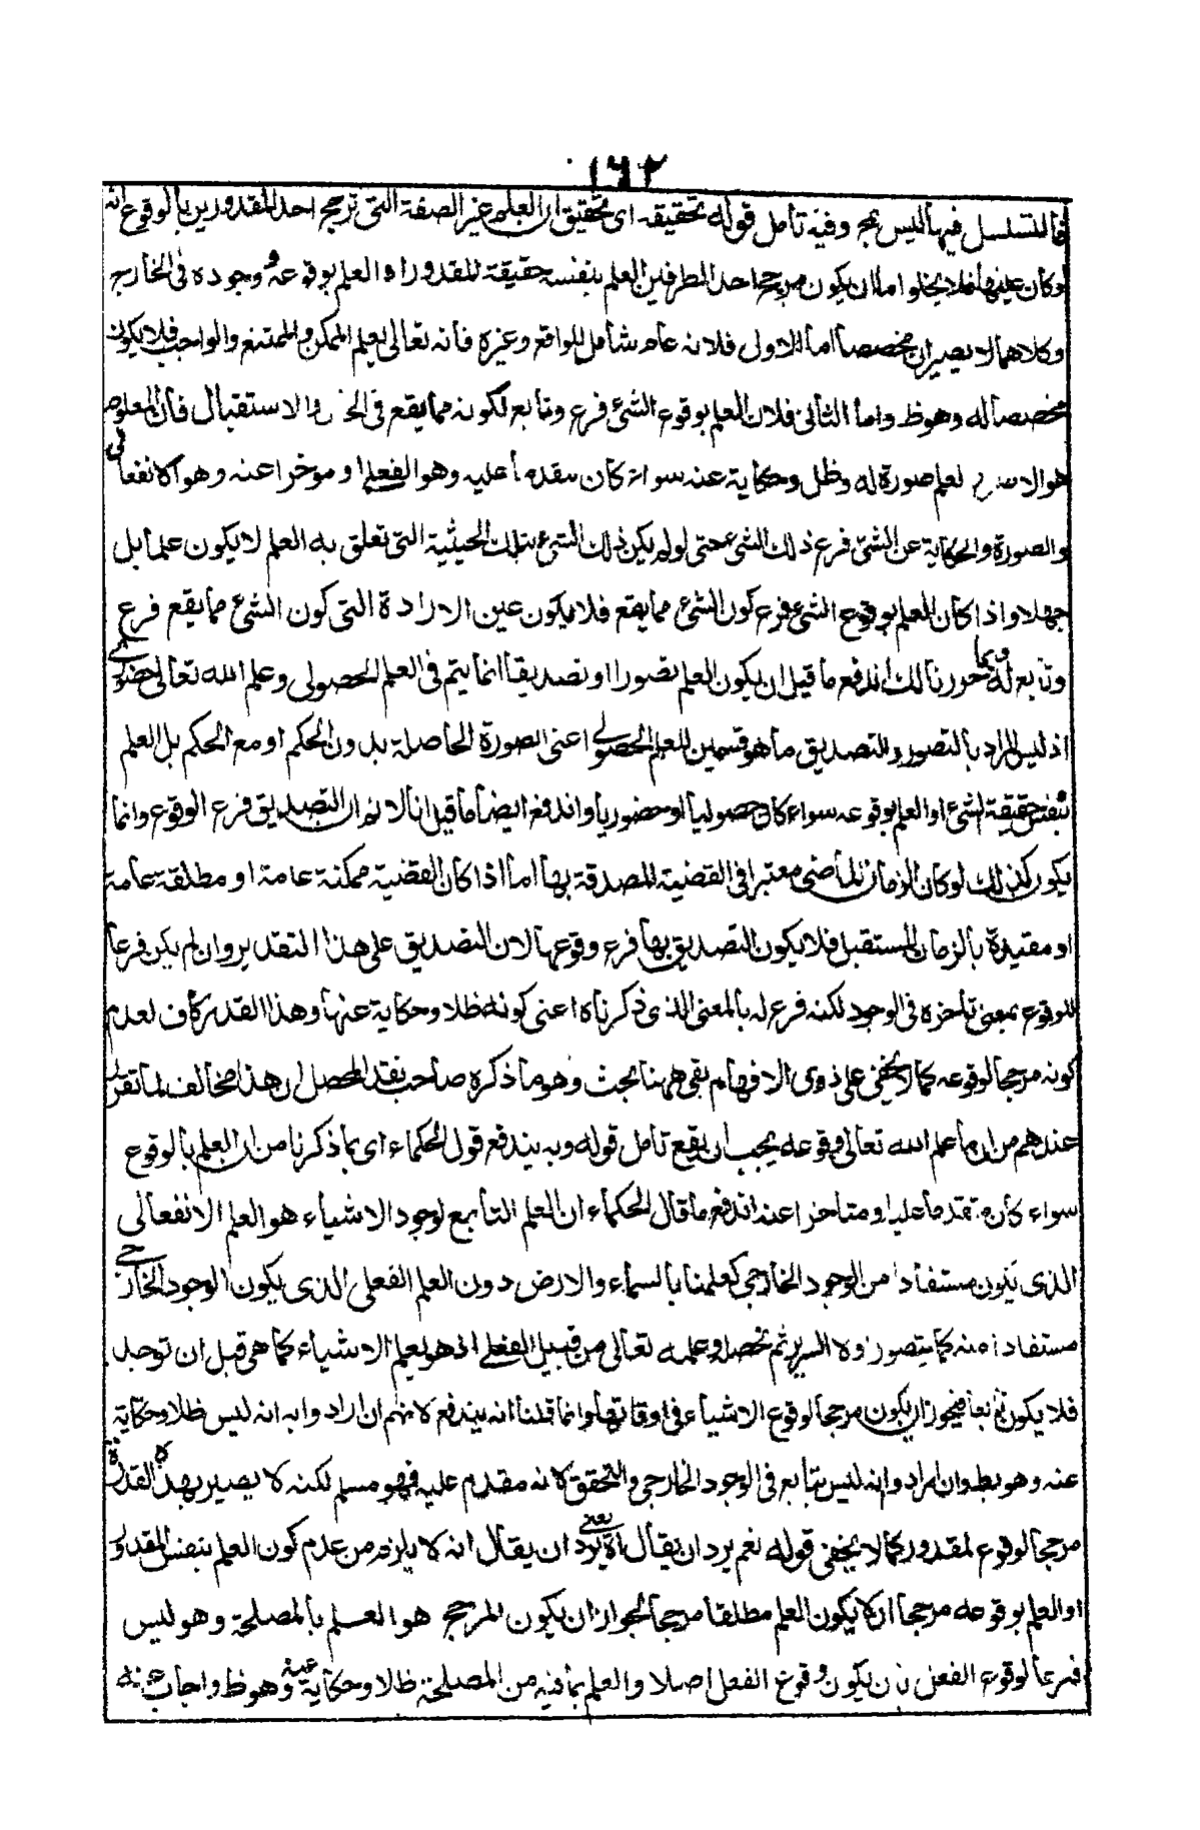 ١٦٢
فالتسلسل فيها ليس بمح وفيه تأمل قوله تحقيقه اى تحقيق ان العلم غير الصفة التى ترجح احد المقدورين بالوقوع انه
لو كان عينها فلا يخلو اما ان يكون مرجح احد الطرفين العلم بنفس حقيقة المقدور او العلم بوقوعه ووجوده فى الخارج
وكلاهما لا يصيران مخصصا اما الاول فلانه عام شامل للواقع وغيره فانه تعالى يعلم الممكن والممتنع والواجب فلا يكون
مخصصا له وهو ظ واما الثانى فلان العلم بوقوع الشئ فرع وتابع لكونه مما يقع فى الحال والاستقبال فان المعلوم
هو الاصل والعلم صورة له وظل وحكاية عنه سواء كان مقدما عليه وهو الفعلى او موخرا عنه وهو الانفعالى
والصورة والحكاية عن الشئ فرع ذلك الشئ حتى لو لم يكن ذلك الشئ بتلك الحيثية التى تعلق به العلم لا يكون علما بل
جهلا واذا كان العلم بوقوع الشئ فرع كون الشئ مما يقع فلا يكون عين الارادة التى كون الشئ مما يقع فرع
وتابع له وبما حررنا لك اندفع ما قيل ان يكون العلم تصورا او تصديقا انما يتم فى العلم الحصولى وعلم الله تعالى حضورى
اذ ليس المراد بالتصور والتصديق ما هو قسمين للعلم الحصولى اعنى الصورة الحاصلة بدون الحكم او مع الحكم بل العلم
بنفس حقيقة الشئ او العلم بوقوعه سواء كان حصوليا او حضوريا واندفع ايضا ما قيل انا لا نم ان التصديق فرع الوقوع وانما
يكون كذلك لو كان الزمان الماضى معتبرا فى القضية المصدقة بها اما اذا كان القضية ممكنة عامة او مطلقة عامة
او مقيدة بالزمان المستقبل فلا يكون التصديق بها فرع وقوعها لان التصديق على هذا التقدير وان لم يكن فرعا
للوقوع بمعنى تأخره فى الوجود لكنه فرع له بالمعنى الذى ذكرناه اعنى كونه ظلا وحكاية عنها وهذا القدر كاف لعدم
كونه مرجحا لوقوعه كما لا يخفى على ذوى الافهام بقى ههنا بحث وهو ما ذكره صاحب نقد المحصل ان هذا مخالف لما تقرر
عندهم من ان ما علم الله تعالى وقوعه يجب ان يقع تأمل قوله وبه يندفع قول الحكماء اى بما ذكرنا من ان العلم بالوقوع
سواء كان متقدما عليه او متاخرا عنه اندفع ما قال الحكماء ان العلم التابع لوجود الاشياء هو العلم الانفعالى
الذى يكون مستفادا من الوجود الخارجى كعلمنا بالسماء والارض دون العلم الفعلى الذى يكون الوجود الخارجى
مستفادا منه كما يتصور اولا السرير ثم نحصله وعلمه تعالى من قبيل الفعلى اذ هو يعلم الاشياء كما هى قبل ان توجد
فلا يكون تابعا فيجوز ان يكون مرجحا لوقوع الاشياء فى اوقاتها وانما قلنا انه يندفع لانهم ان ارادوا به انه ليس ظلا وحكاية
عنه وهو بط وان ارادوا انه ليس بتابع فى الوجود الخارجى والتحقق لانه مقدم عليه فهو مسلم لكنه لا يصير بهذه القدرة
مرجحا لوقوع المقدور كما لا يخفى قوله نعم يرد ان يقال آه يعنى يرد ان يقال انه لا يلزم من عدم كون العلم بنفس المقدور
او العلم بوقوعه مرجحا ان لا يكون العلم مطلقا مرجحا لجواز ان يكون المرجح هو العلم بالمصلحة وهو ليس
فرعا لوقوع الفعل بان يكون وقوع الفعل اصلا والعلم بما فيه من المصلحة ظلا وحكاية عنه وهو ظ واجاب عنه